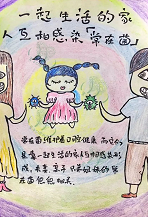 一起生活的家
人互相感染「常在菌」
常在菌维护着口腔健康，而它们
是靠一起生活的家人互相感染形
成，夫妻、亲子、兄弟姐妹的常
在菌